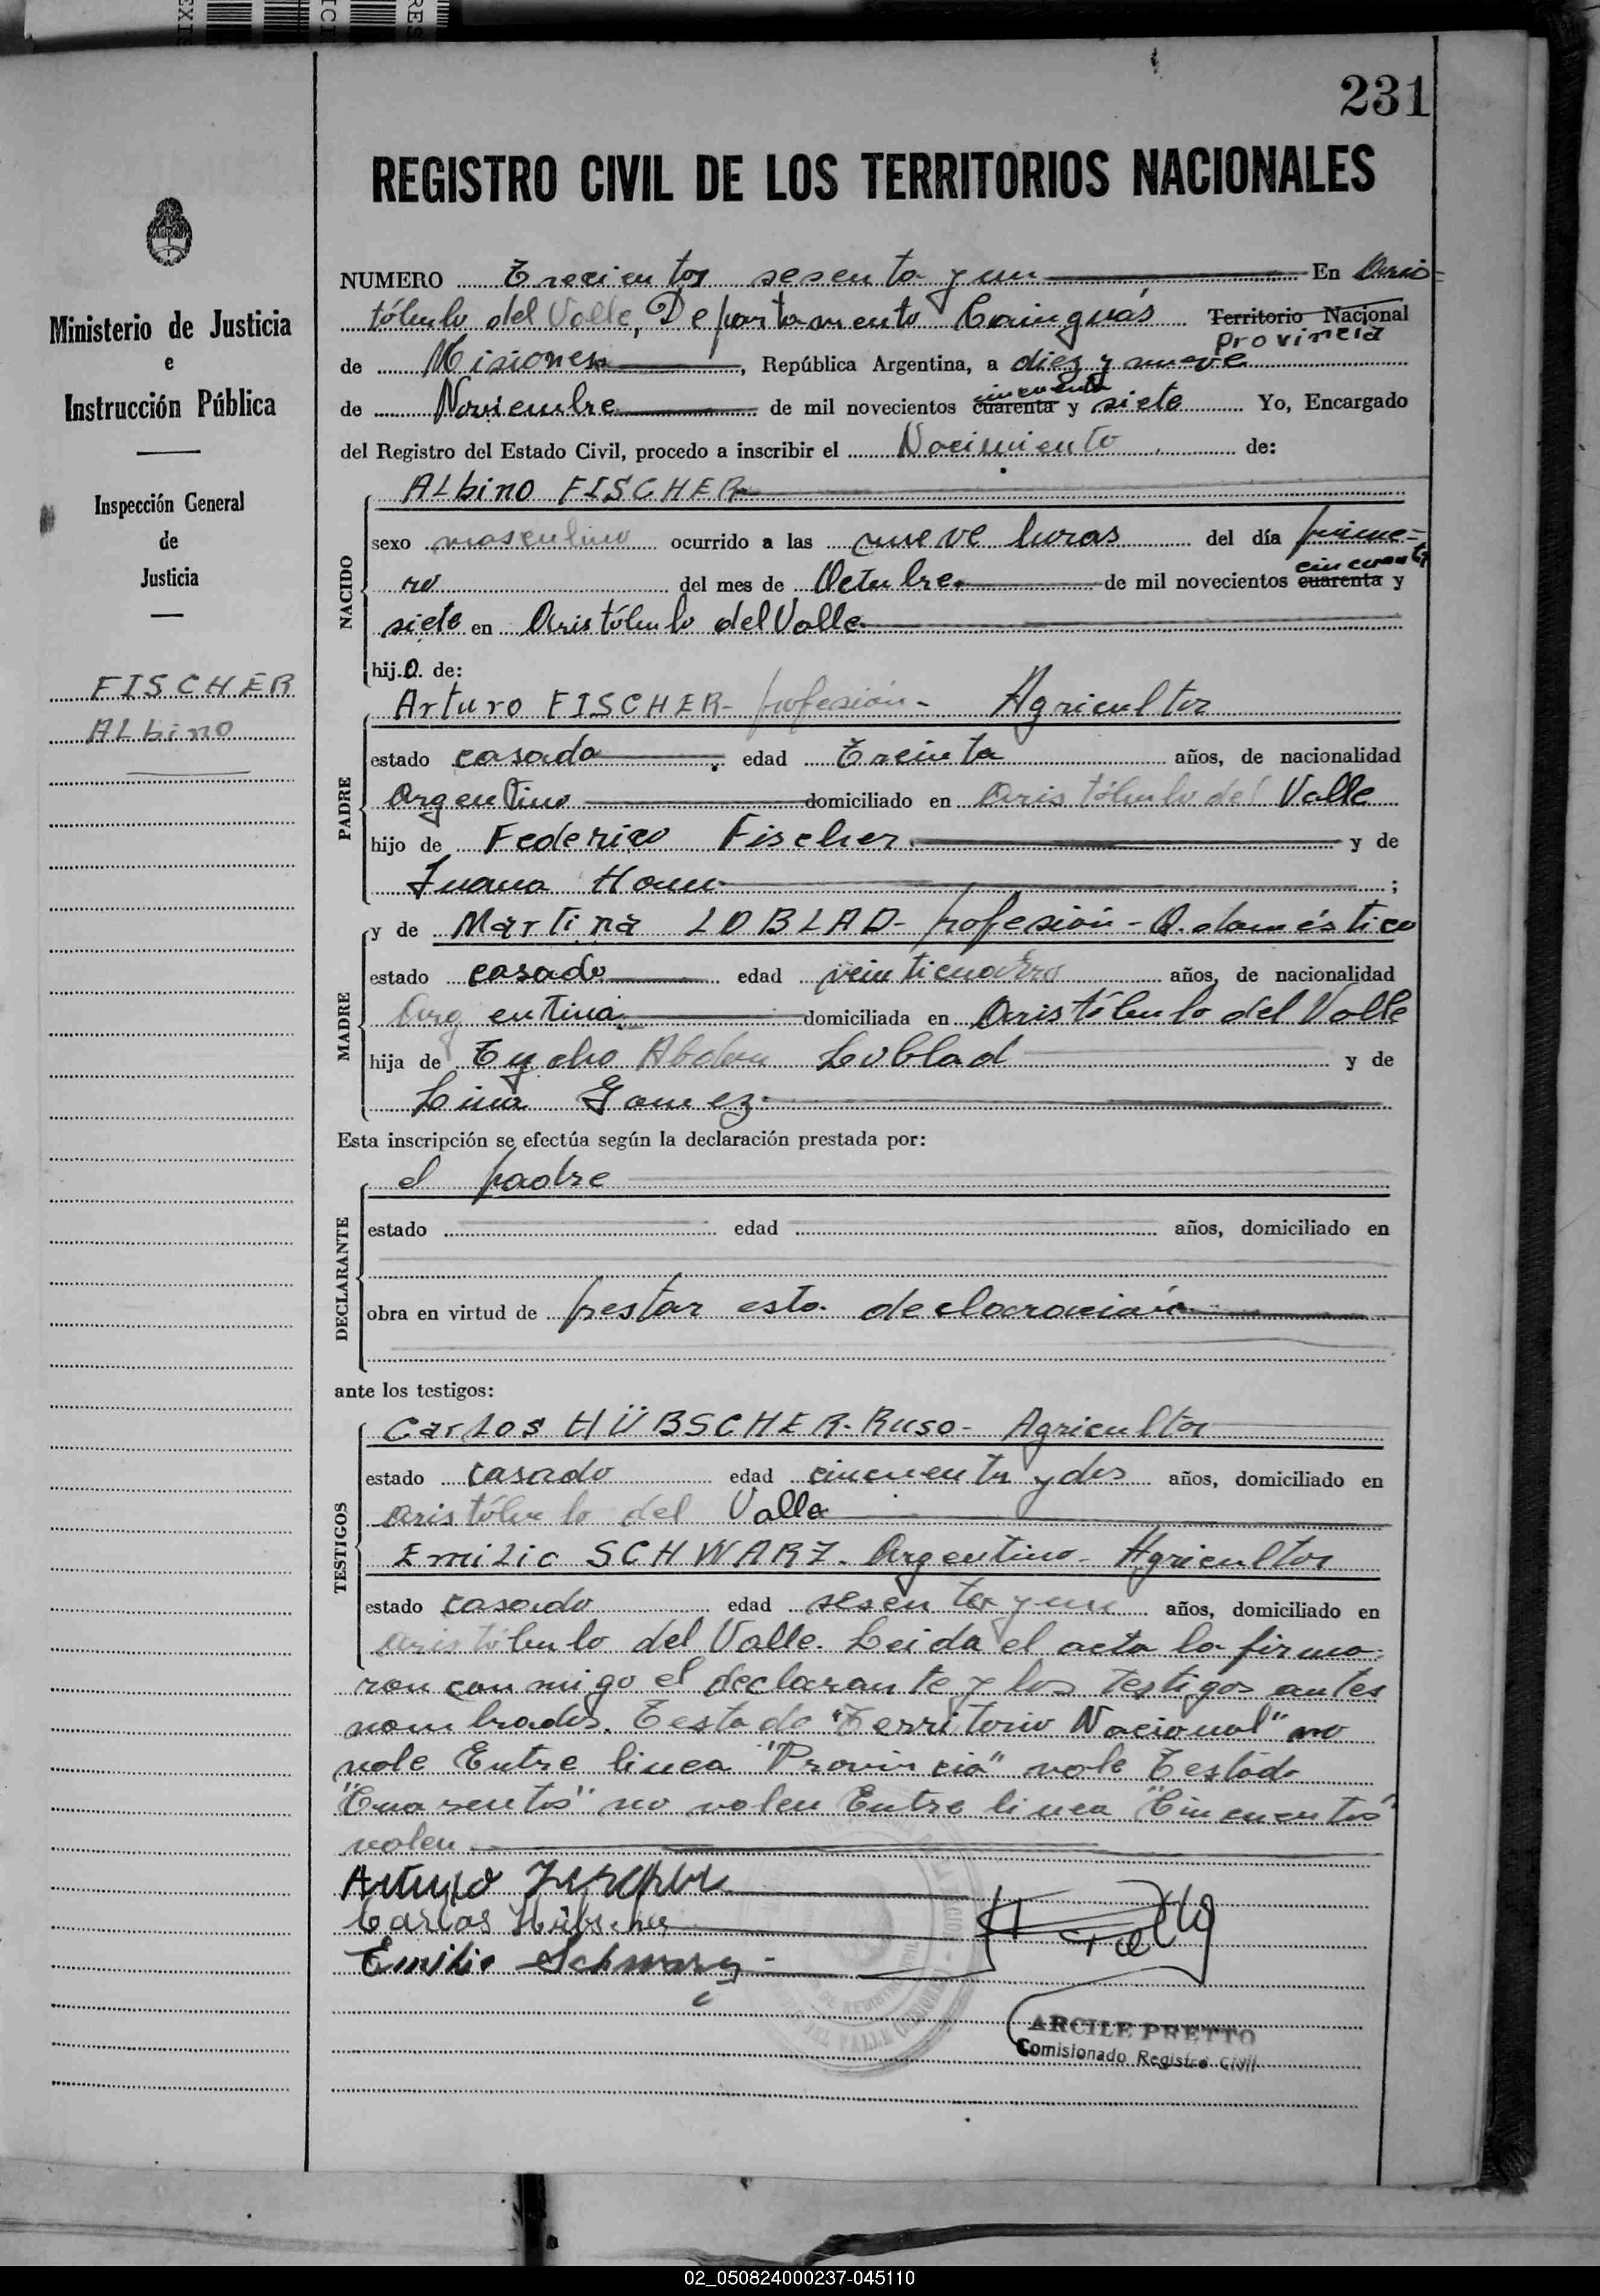 231
REGISTRO CIVIL DE LOS TERRITORIOS NACIONALES
Ministerio de Justicia
e
Instrucción Pública
Inspección General
de
Justicia
FISCHER
ALbino
NUMERO Trecientos sesenta y un En Aris-
tóbulo del Valle, Departamento Cainguás Territorio Nacional
Provincia
de Misiones, República Argentina, a diez y nueve
cincuenta
de Noviembre de mil novecientos cuarenta y siete Yo, Encargado
del Registro del Estado Civil, procedo a inscribir el Nacimiento de:
NACIDO
ALbino FISCHER
sexo masculino ocurrido a las nueve horas del día prime-
cincuenta
ro del mes de Octubre de mil novecientos cuarenta y
siete en Aristóbulo del Valle
hijo de:
PADRE
Arturo FISCHER- profesión- Agricultor
estado casado edad Treinta años, de nacionalidad
Argentino domiciliado en Aristóbulo del Valle
hijo de Federico Fischer y de
Juana ;
MADRE
y de Martina LOBLAD- profesión- Q. doméstico
estado casada edad veinticuatro años, de nacionalidad
Argentina domiciliada en Aristóbulo del Valle
hija de Tycho Abdon Loblad y de
Lina Gomez
Esta inscripción se efectúa según la declaración prestada por:
DECLARANTE
el padre
estado edad años, domiciliado en
obra en virtud de prestar esta declaración
ante los testigos:
TESTIGOS
Carlos HÜBSCHER- Ruso- Agricultor
estado casado edad cincuenta y dos años, domiciliado en
Aristóbulo del Valle
Emilio SCHWARZ. Argentino- Agricultor
estado casado edad sesenta y un años, domiciliado en
Aristóbulo del Valle. Leida el acta la firma-
ron conmigo el declarante y los testigos antes
nombrados. Testado "Territorio Nacional" no
vale Entre linea "Provincia" vale Testado
"Cuarentas" no valen Entre linea "Cincuentas"
valen
Arturo Fischer
Carlos Hübscher
Emilio Schwarz
ARCILE PRETTO
Comisionado Registro Civil
02_050824000237-045110